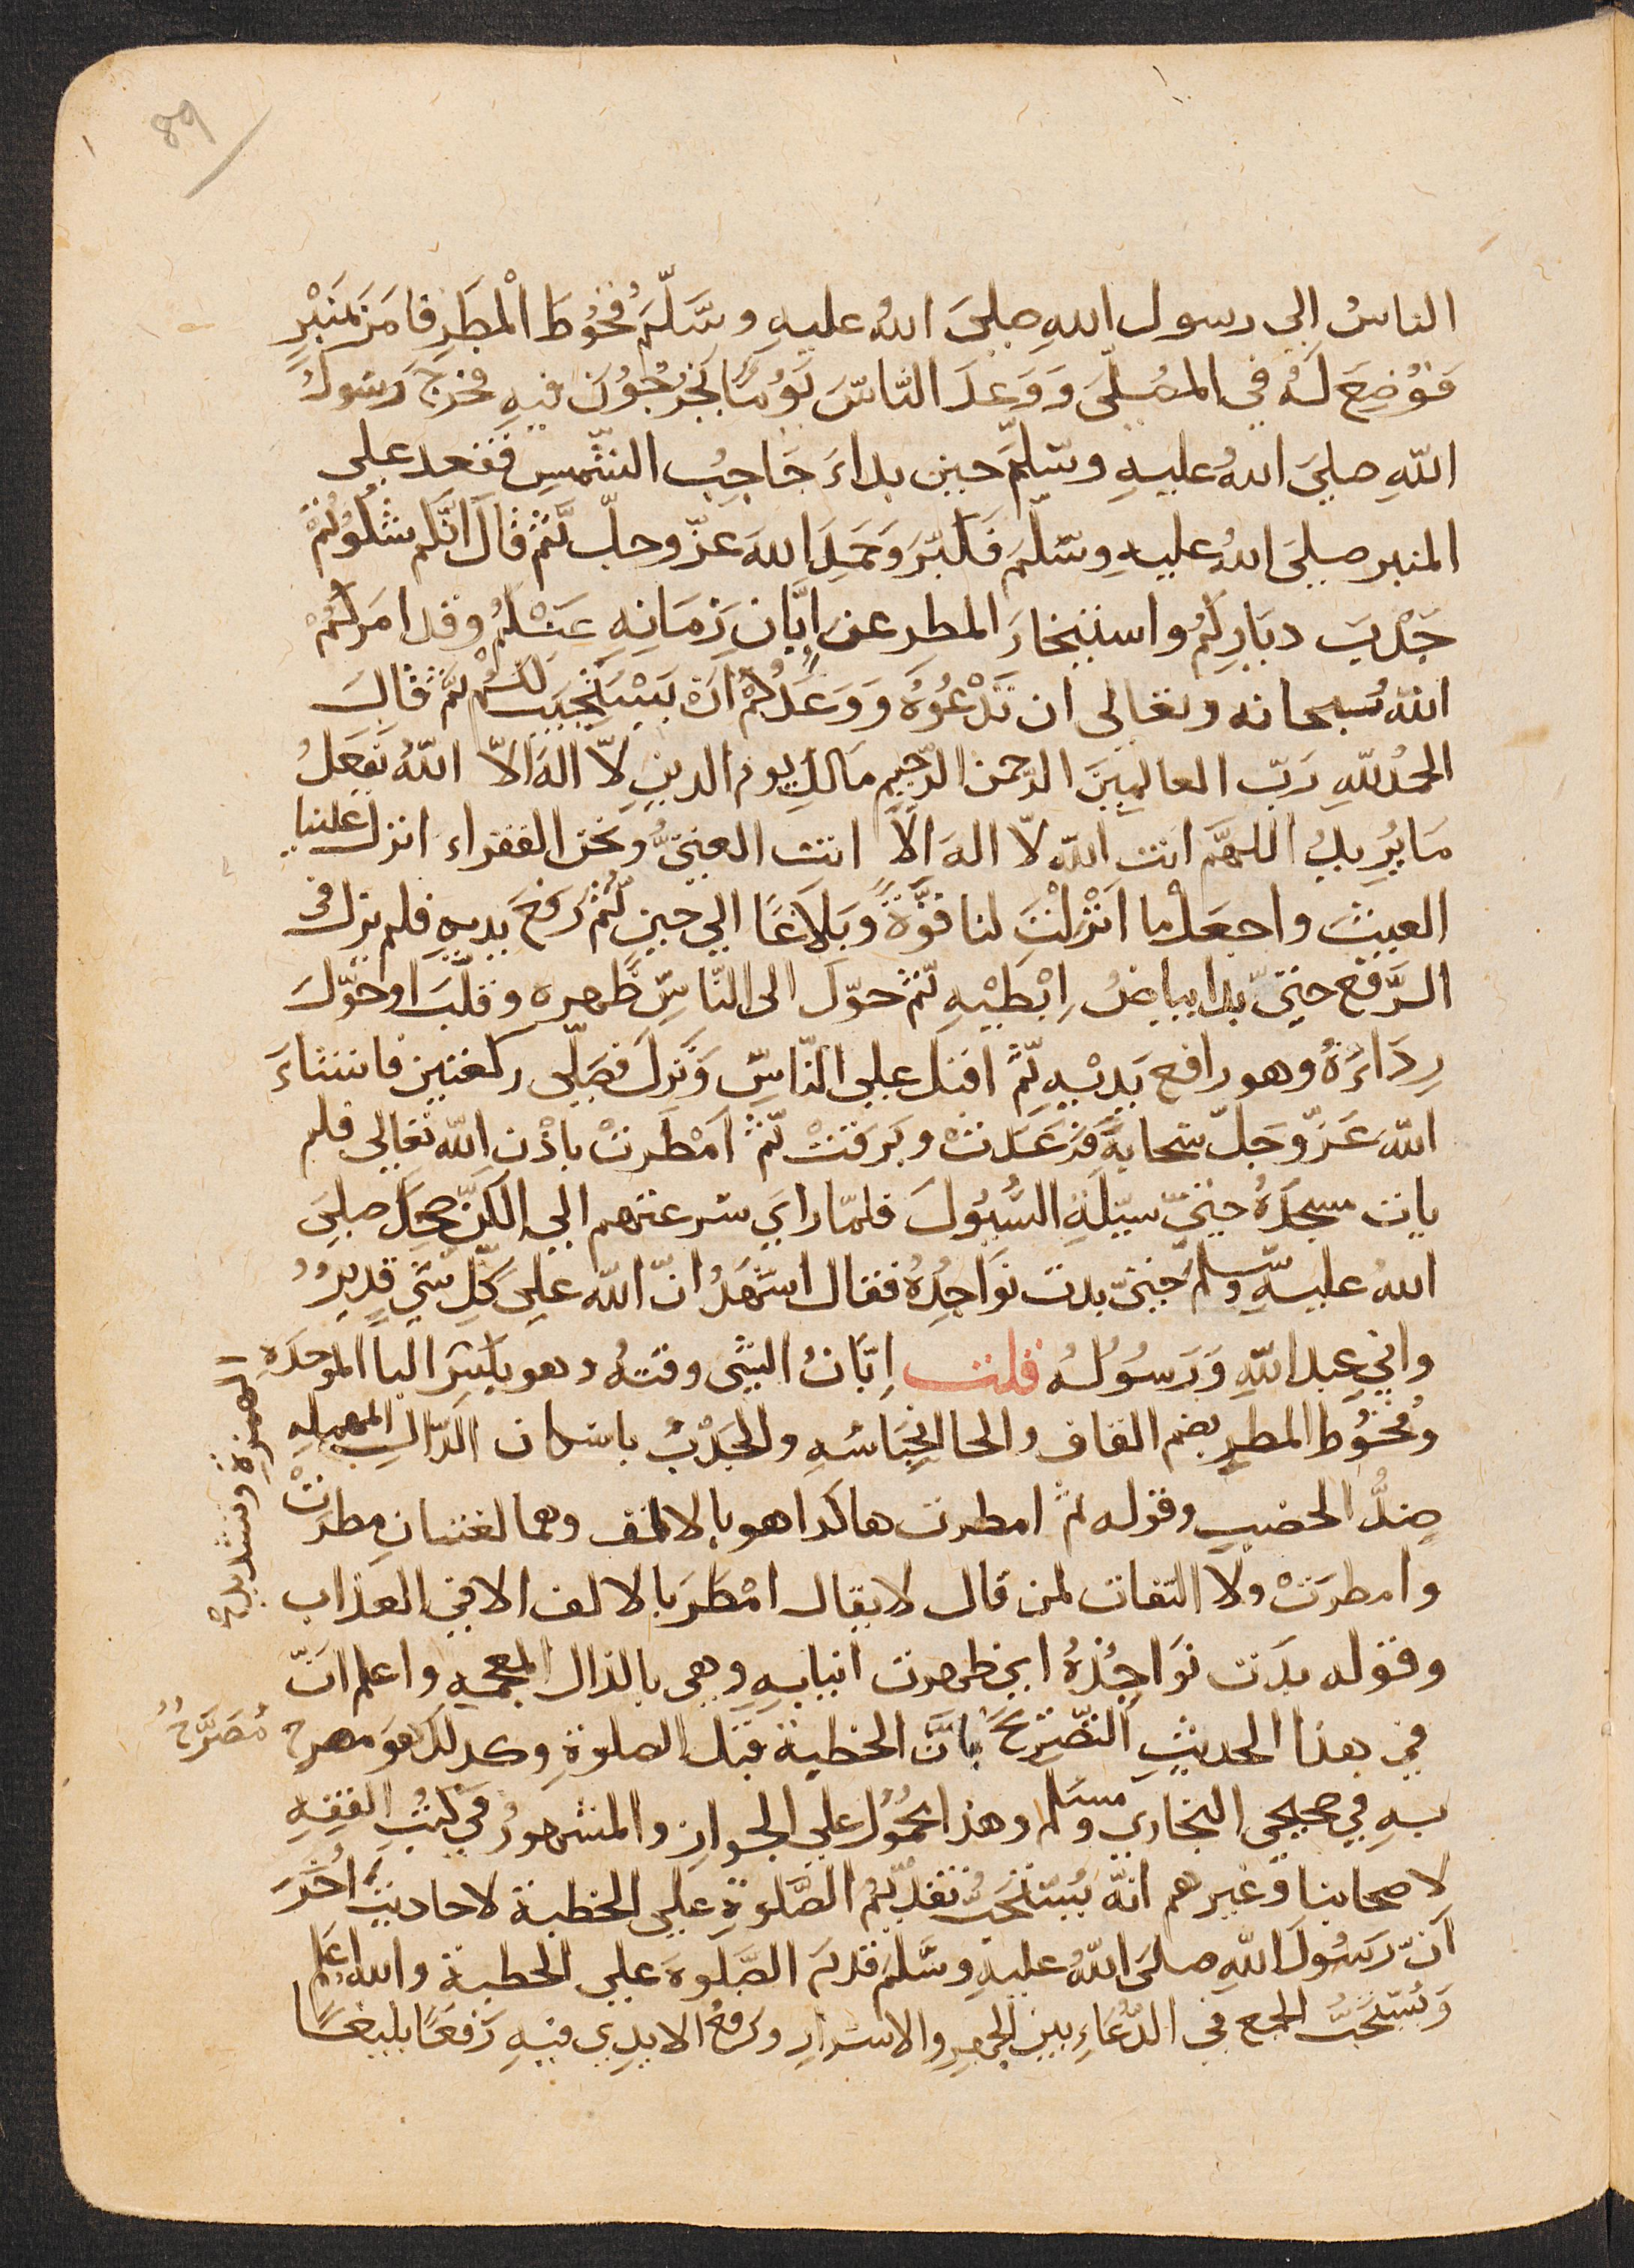 89
الناسُ الى رسول اللهِ صلىَ اللهُ عليهِ وسَّلّمَ قُحُوُطَ الْمطَرِ فامَرَ بمَنْبْرٍ
فَوُضِعَ لَهُ في المصُلّىَ وَوَعَدَ النّاسَ يَوُمًا يَخْرُجُوُنَ فيهِ فخرجَ رَسَولُ
اللّهِ صلىَ اللهُ عليهِ وسّلمَّ حين بداءَ حَاجِبُ الشّمسِ فقعد على
المنبر صلىَ اللهُ عليهِ وسّلّمَ فَكبّرَ وَحَمَدَ اللهَ عزّ وجلّ ثّمَ قالَ انّكم شكَوُتُمْ
جَدْبَ ديَارِكُمُ واستيخارَ المطر عن اِبَّانِ زَمَانِهِ عَنْكُمُ وقد امَركُمْ
اللهُ سُبحانه وتعالى ان تَدْعُوُهُ وَوَعَدَكُمْ اَنْ يَسْتَجيَبَ لكُمْ ثمَّ قالَ
الحمُدللّهِ رَبّ العالميِنَ الرّحمن الرّحيِم مَالكِ يوم الدينِ لاّ الهَ الاّ اللّهُ يَفعَلُ
مَا يُرِيدُ اللهمَّ انت اللّه لاّ الهَ الاّ انت الغنىُّ ونحن الفقراء انزل علينا
الغيثَ واجعَلْ ما انَزْلتَ لنا قوّةً وَبَلَاغًا الى حينٍ ثُمّ رفَعَ يديهِ فلم يزل فى
الرَّفْع حتىّ بدا بياضُ اِبْطَيْهِ ثّم حوّل الى النّاسِ ظهره وقلّبَ او حوّلَ
رِدَاءَهُ وهو رافع يَديْهِ ثّمَ اقبل على النّاسّ وَنَزلَ فصَلّى ركعتين فانشاءَ
اللّهَ عَزّ وَجَلّ سحابةً فرَعَدَتْ وبَرقَتْ ثّمَ امْطَرتْ باذْن اللّه تعالى فلم
يات مسجدَهُ حتىّ سَيّلَةِ السُّيُوُلَ فلمّا رايَ سرعتهم الى الكنّ ضحِكَ صلىَ
اللهُ عليهّ وسلّم حتىّ بدت نوَاجِذُهُ فقال اشَهَدُ انّ اللّه علىَ كُلِّ شيٍ قديرٌ
واني عبد اللّهِ وَرَسُوُلهُ قلت اِبّانُ الشئ وقتهُ وهو بكسَرِ البا الموحدَةِ
الهمزةِ وتشديد
وقُحُوُط المطر بضم القاف والحا الخِبَاسُهِ والجَدْبُ باسكان الدّالِ المهملهِ
ضِدُّ الخصب وقوله ثّم امطرت هاكذا هو بالالف وهما لغتان مطرتْ
وامطرَتْ ولا التفات لمن قال لايقال امْطَرَ بالالف الا في العذاب
وقوله بدَت نوَاجُذهُ اي ظهرت انيابهِ وهى بالذال المعجمهِ واعلم انّ
في هذا الحديثِ التّصْرِيحَ باَنَّ الخطبة قبل الصلوةِ وكذلك هوَ مصرح
مُصَرَّحُُ
بهِ في صحيحي البخاري ومسلم وهذا محمُوُل على الجواز والمشهورُ في كتبِ الفقهِ
لاصحابنا وغيرهم انّهُ يُستحَبُّ تقديُم الصَّلوةِ على الخطبة لاحاديث اُخَرَ
اَنّ رَسُوُلَ اللّهِ صلىَ اللّهُ عليهِ وسَّلمَ قدمَ الصَّلَوةَ على الخطبة والله اعلم
وَيُستحَبُّ الجمع في الدُّعَاءِ بين الجهر والاسرار ورَفعُ الايدِى فيهِ رَفعًا بليغًا